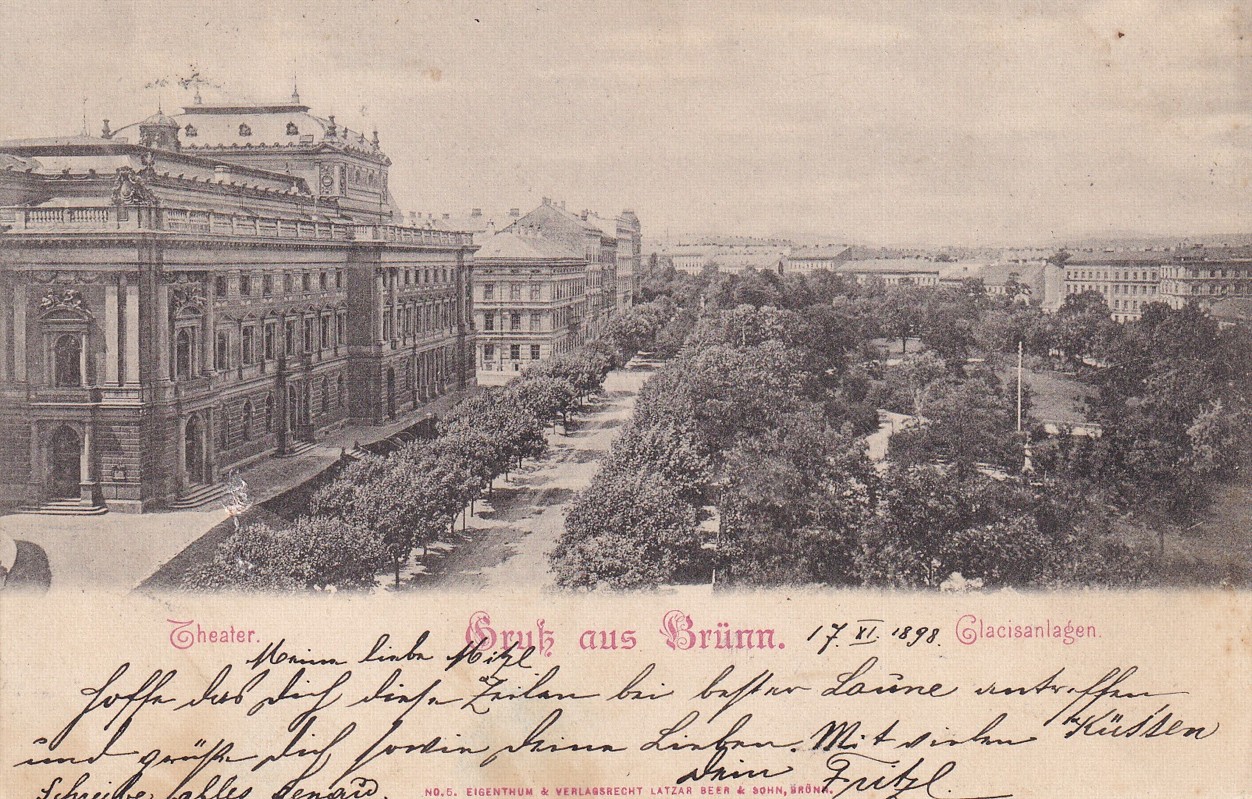 Theater. Gruß aus Brünn. 17. XI. 1898. Glacisanlagen.
Meine liebe Mitzl
hoffe das dich diese Zeilen bei bester Laune antreffen
und grüße dich sowie deine Lieben. Mit vielen Küssen
dein Fritzl.
Schreibe alles genau.
NO. 5. EIGENTHUM & VERLAGSRECHT LATZAR BEER & SOHN, BRÜNN.